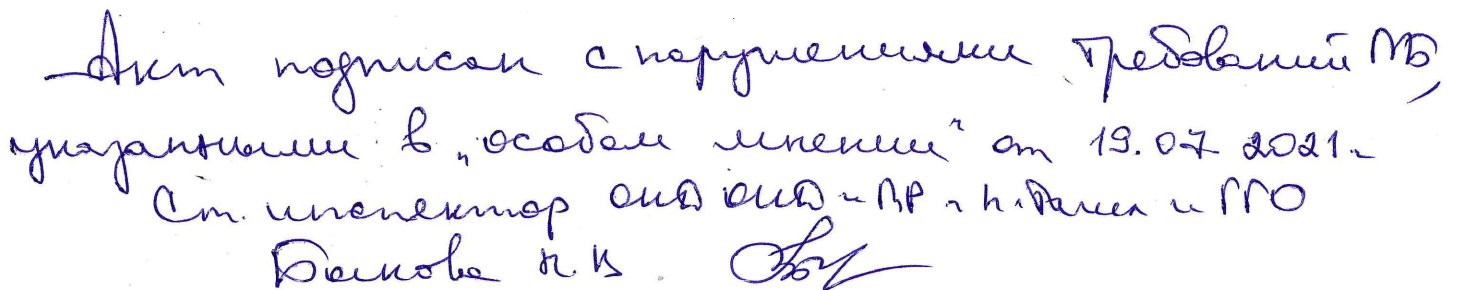 Акт подписан с нарушениями требований ПБ,
указанными в "особом мнении" от 19.07.2021г.
Ст. инспектор ОНД и ПР г. и ГГО
Н.В